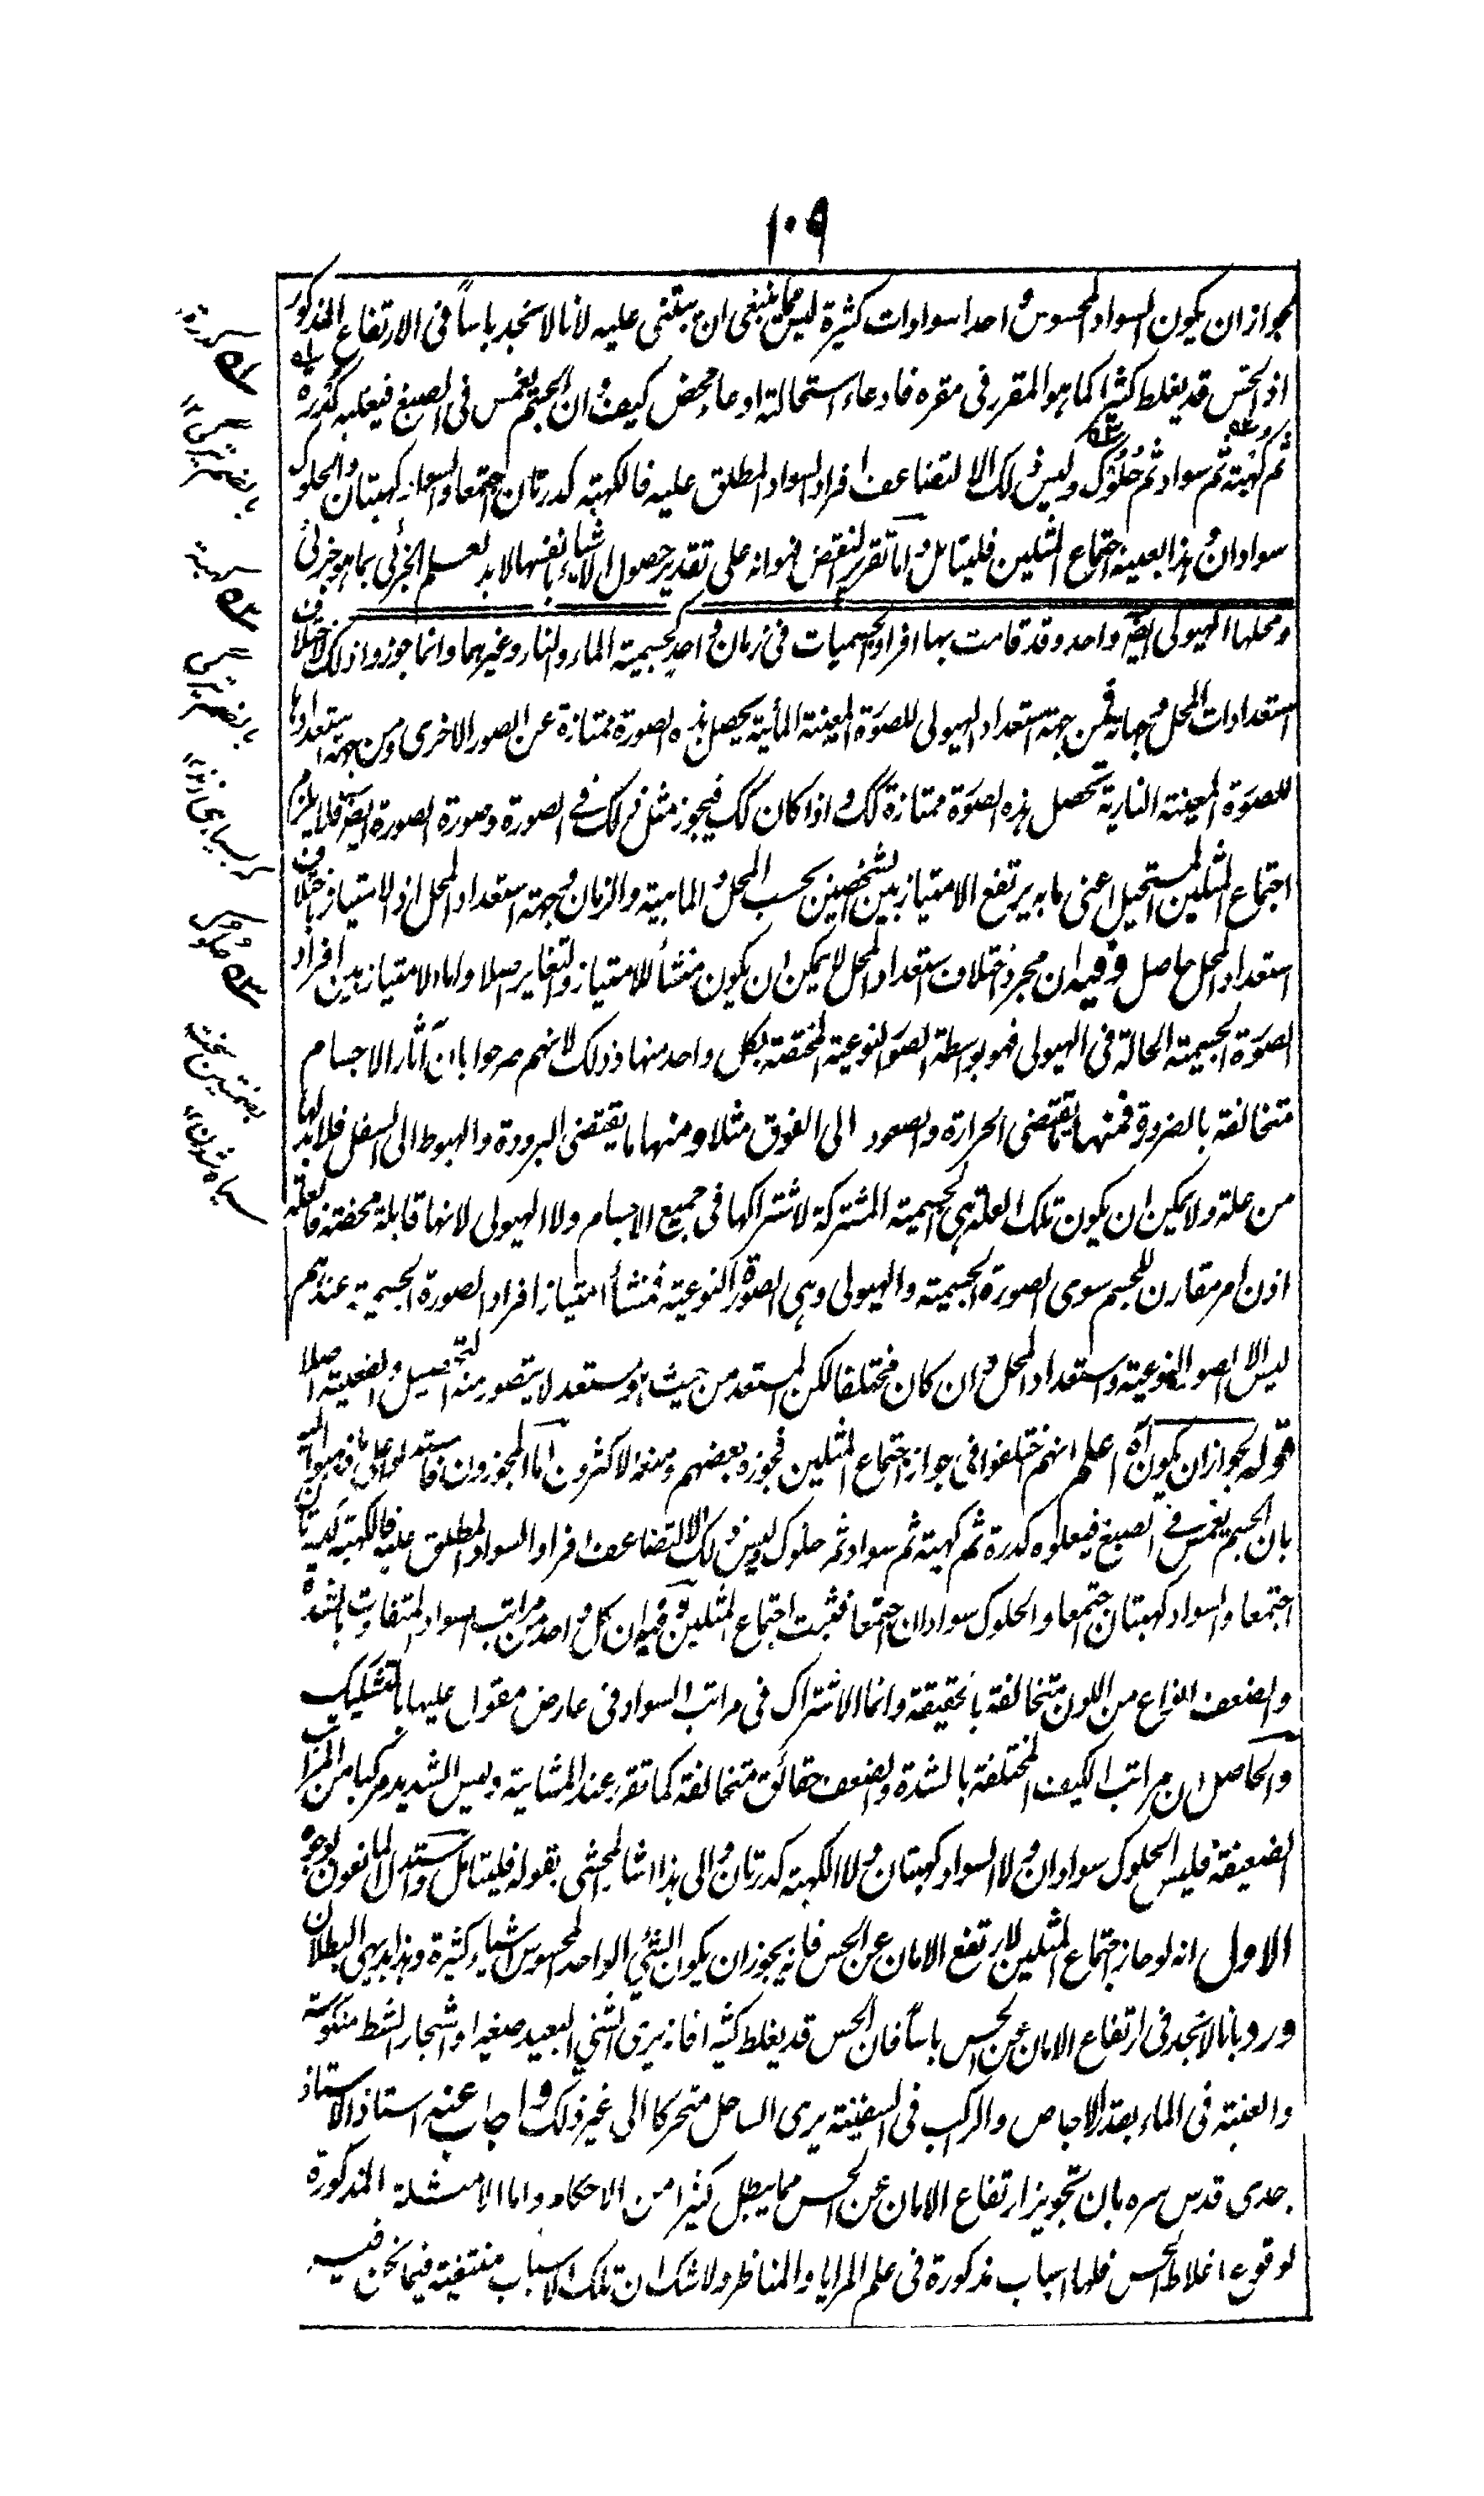 ١٠٩
بجواز ان يكون السواد المحسوس واحدا سوادات كثيرة ليس مما ينبغى ان يبتنى عليه لانا لا نجد باسا فى الارتفاع المذكور
اذ الحس قد يغلط كثيرا كما هو المقرر فى مقره فادعاء استحالته ادعاء محض كيف وان الجسم يغمس فى الصبغ فيعلبه كدرة
ثم كهبة ثم سواد ثم حُلُوك وليس ذلك الا لتضاعف افراد السواد المطلق عليه فالكهبة كدرتان اجتمعا والسواد كهبتان والحلوك
سوادان وهذا بعينه اجتماع المثلين فليتامل واما تقرير النقض فهو انه على تقدير حصول الاشياء بانفسها لا بد لعلم الجزئى بما هو جزئى
ومحلها الهيولى ايضا واحد وقد قامت بها افراد الجسميات فى زمان واحد كجسمية الماء والنار وغيرهما وانما جوزوا ذلك لاختلاف
استعدادات المحل وجهاته فمن جهة استعداد الهيولى للصورة المعينة المائية يحصل هذه الصورة ممتازة عن الصور الاخرى ومن جهة استعدادها
للصورة المعينة النارية تحصل هذه الصورة ممتازة كك واذا كان كك فيجوز مثل ذلك فى الصورة وصورة الصورة ايضا فلا يلزم
اجتماع المثلين المستحيل اعنى ما به يرتفع الامتياز بين الشخصين بحسب المحل والماهية والزمان وجهة استعداد المحل اذ الامتياز باختلاف
استعداد المحل حاصل وفيه ان مجرد اختلاف استعداد المحل لا يمكن ان يكون منشأ للامتياز والتغاير اصلا واما الامتياز بين افراد
الصورة الجسمية الحالة فى الهيولى فهو بواسطة الصور النوعية المختصة بكل واحد منها وذلك لانهم صرحوا بان آثار الاجسام
متخالفة بالضرورة فمنها ما يقتضى الحرارة والصعود الى الفوق مثلا ومنها ما يقتضى البرودة والهبوط الى السفل فلا بد لها
من علة ولا يمكن ان يكون تلك العلة هى الجسمية المشتركة لاشتراكها فى جميع الاجسام ولا الهيولى لانها قابلة محضة فالعلة
اذن امر مقارن للجسم سوى الصورة الجسمية والهيولى وهى الصورة النوعية فمنشأ امتياز افراد الصورة الجسمية عندهم
ليس الا الصور النوعية واستعداد المحل وان كان مختلفا لكن المستعد من حيث هو مستعد لا يتصور منه التحصيل والفعلية اصلا
قوله بجواز ان يكون آه اعلم انهم اختلفوا فى جواز اجتماع المثلين فجوزه بعضهم ومنعه الاكثرون اما المجوزون فاستدلوا على ما ذهبوا اليه
بان الجسم يغمس فى الصبغ فيعلوه كدرة ثم كهبة ثم سواد ثم حلوك وليس ذلك الا لتضاعف افراد السواد المطلق عليه فالكهبة كدرتان
اجتمعا والسواد كهبتان اجتمعا والحلوك سوادان اجتمعا فثبت اجتماع المثلين وفيه ان كل واحد من مراتب السواد المتفاوت بالشدة
والضعف انواع من اللون متخالفة بالحقيقة وانما الاشتراك فى مراتب السواد فى عارض مقول عليها بالتشكيك
والحاصل ان مراتب الكيف المختلفة بالشدة والضعف حقائق متخالفة كما تقرر عند المشائية وليس الشديد مركبا من المراتب
الضعيفة فليس الحلوك سوادان ولا السواد كهبتان ولا الكهبة كدرتان والى هذا اشار المحشى بقوله فليتامل واستدل المانعون بوجوه
الاول انه لو جاز اجتماع المثلين لارتفع الامان عن الحس فانه يجوز ان يكون الشئ الواحد المحسوس اشياء كثيرة وهذا بديهى البطلان
ورد بانا لا نجد فى ارتفاع الامان عن الحس باسا فان الحس قد يغلط كثيرا فانه يرى الشئ البعيد صغيرا واشجار الشط منكوسة
والعنبة فى الماء بقدر الاجاص والراكب فى السفينة يرى الساحل متحركا الى غير ذلك واجاب عنه استاذ الاستاذ
جدى قدس سره بان تجويز ارتفاع الامان عن الحس مما يبطل كثيرا من الاحكام واما الامثلة المذكورة
لوقوع اغلاط الحس فلها اسباب مذكورة فى علم المرايا والمناظر ولا شك ان تلك الاسباب منتفية فيما نحن فيه
كدرة
بالضم تيرگى ١٢
كهبة
بالضم تيرگى
سياهى
حُلوك
بضمتين سخت
سياه شدن ١٢